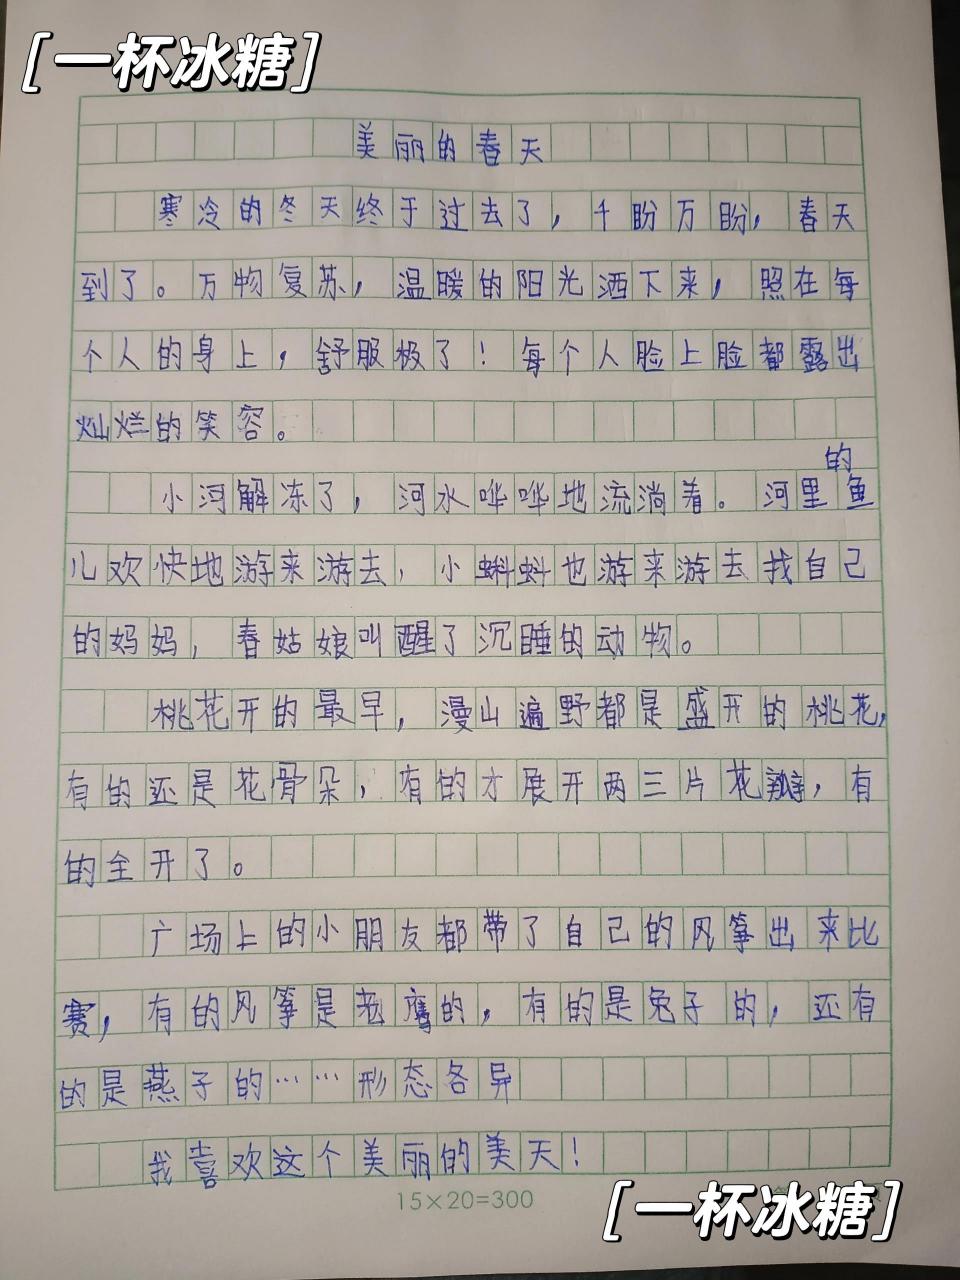 [一杯冰糖]
美丽的春天
寒冷的冬天终于过去了，千盼万盼，春天
到了。万物复苏，温暖的阳光洒下来，照在每
个人的身上，舒服极了！每个人脸上脸都露出
灿烂的笑容。
小河解冻了，河水哗哗地流淌着。河里的鱼
儿欢快地游来游去，小蝌蚪也游来游去找自己
的妈妈，春姑娘叫醒了沉睡的动物。
桃花开的最早，漫山遍野都是盛开的桃花，
有的还是花骨朵，有的才展开两三片花瓣，有
的全开了。
广场上的小朋友都带了自己的风筝出来比
赛，有的风筝是老鹰的，有的是兔子的，还有
的是燕子的……形态各异
我喜欢这个美丽的美天！
15×20=300
[一杯冰糖]